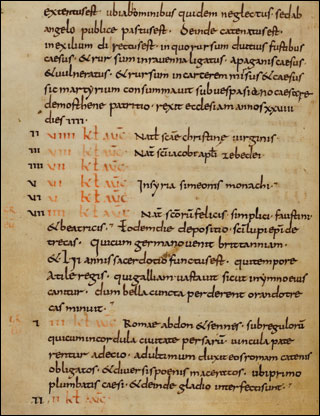 extentusest. ubiabhominibus quidem neglectus. sedab
angelo publice pastusest. Deinde catenatusest
inexilium directusest. inquorursum ductus fustibus
caesus. & rursum inrauennaligatus. apaganis caesus
& uulneratus. & rursum incarcerem missus & caesus
sic martyrium consummauit subuespasiano caesare.
demosthene patritio. rexit ecclesiam annos xxviiii
dies iiii.
II viiii kł auḡ Nat̄ scae christinae virginis.
III viii kł auḡ Nat̄ sc̄i iacobi apłi zebedei.
IIII vii kł auḡ
V vi kł auḡ Insyria simeonis monachi.
VI v kł auḡ
VII iiii kł auḡ Nat̄ scōrū felicis. simplici. faustini
& beatricis. Eodemdie depositio. sc̄i lupi ep̄i de
trecas. Quicum germano uenit brittanniam.
& LII annis sacerdotio functusest. quitempore
atile regis. quigalliam uastauit sicut inymnoeius
cantur. dum bella cuncta perderent orandotre
cas muniuit.
I iii kł auḡ Romae abdon & sennes. subregulorū
quicumincordula ciuitate persarū. uincula pate
rentur adecio. adultimum duxit eosromam catenis
obligatos. & diuersispoenis maceratos. ubiprimo
plumbatis caesi. & deinde gladio interfectisunt.
II ii kł auḡ